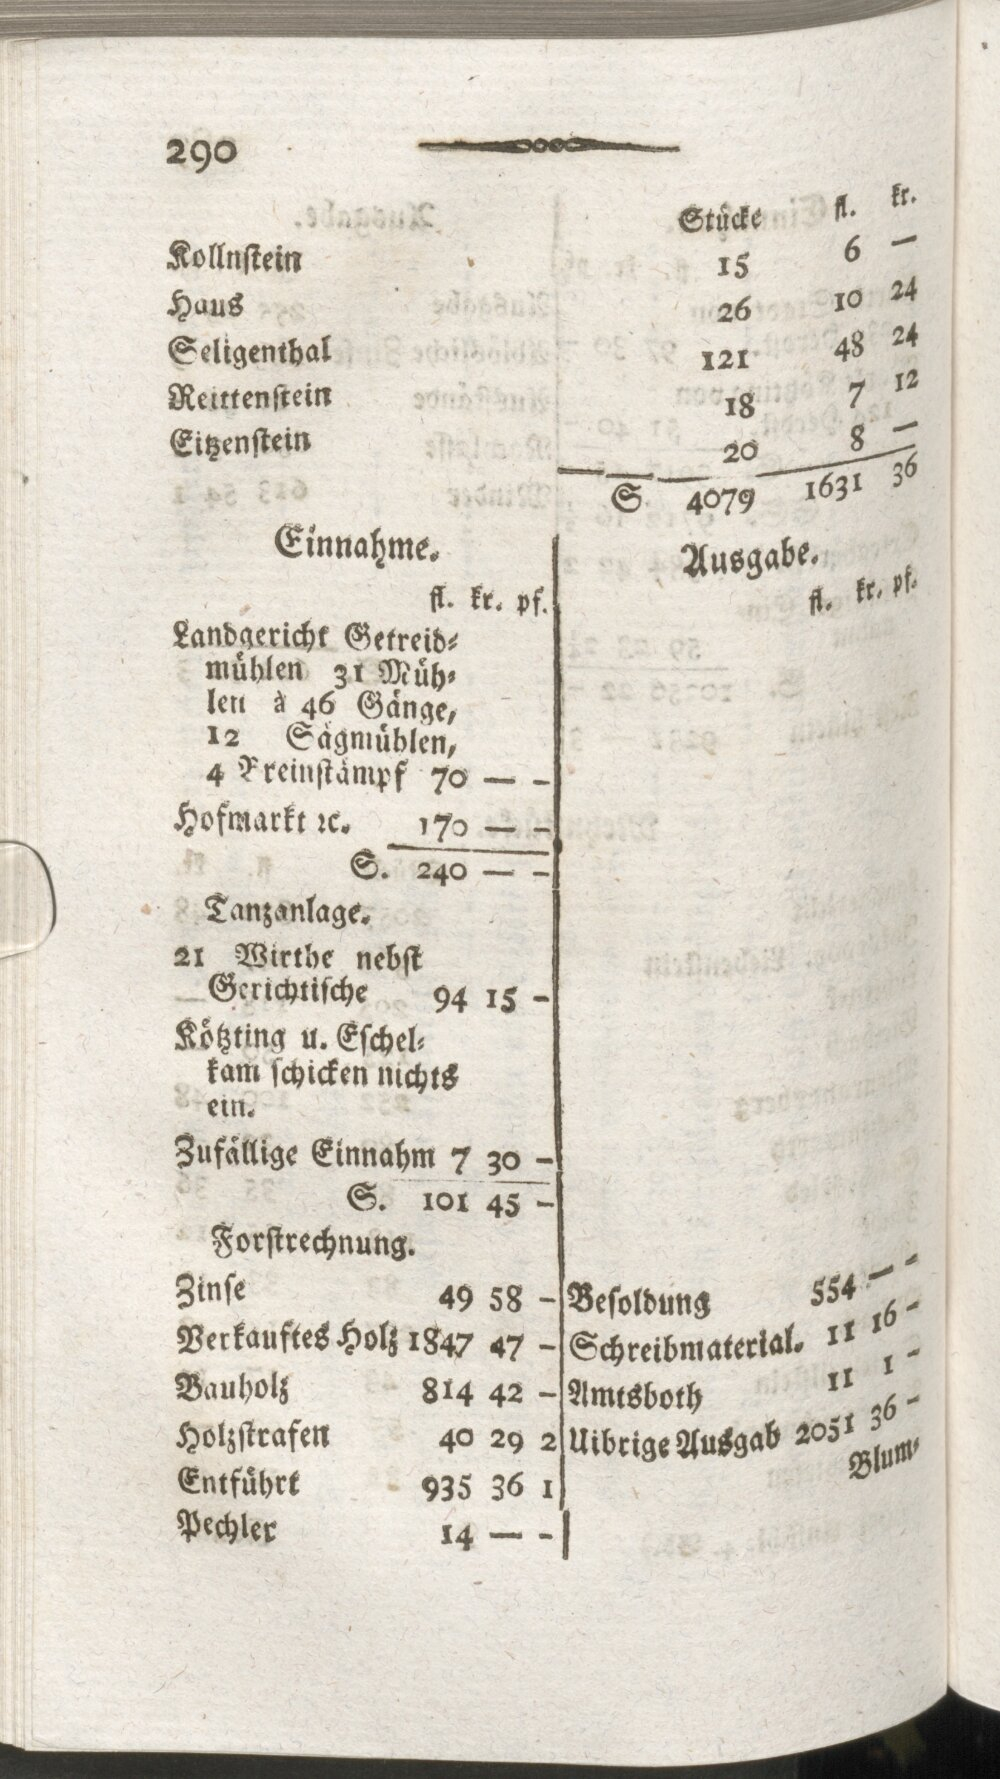 290
Stücke fl. kr.
Kollnstein 15 6 —
Haus 26 10 24
Seligenthal 121 48 24
Reittenstein 18 7 12
Eitzenstein 20 8 —
S. 4079 1631 36
Einnahme.
fl. kr. pf.
Landgericht Getreid-
mühlen 31 Müh-
len à 46 Gänge,
12 Sägmühlen,
4 Breinstämpf 70 — -
Hofmarkt ꝛc. 170 — -
S. 240 — -
Tanzanlage.
21 Wirthe nebst
Gerichtische 94 15 -
Kötzting u. Eschel-
kam schicken nichts
ein.
Zufällige Einnahm 7 30 -
S. 101 45 -
Forstrechnung.
Zinse 49 58 -
Verkauftes Holz 1847 47 -
Bauholz 814 42 -
Holzstrafen 40 29 2
Entführt 935 36 1
Pechler 14 — -
Ausgabe.
fl. kr. pf.
Besoldung 554 — -
Schreibmaterial. 11 16 -
Amtsboth 11 1 -
Uibrige Ausgab 2051 36 -
Blum-